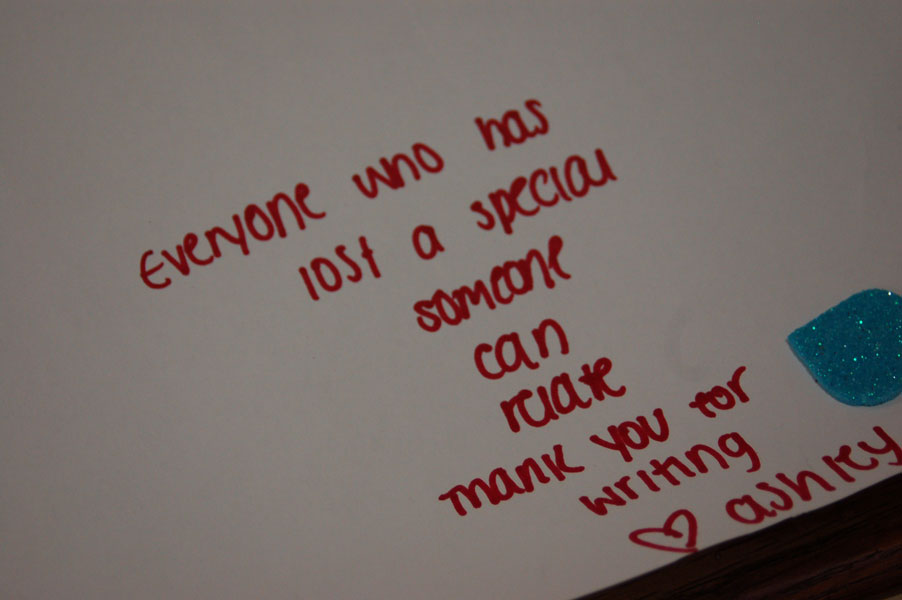 Everyone who has
lost a special
someone
can
relate
Thank you for
writing
♡ ashley